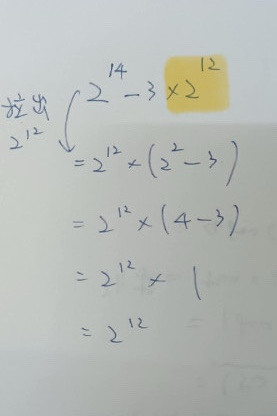 2^14 - 3 × 2^12
提出
2^12
= 2^12 × (2^2 - 3)
= 2^12 × (4 - 3)
= 2^12 × 1
= 2^12